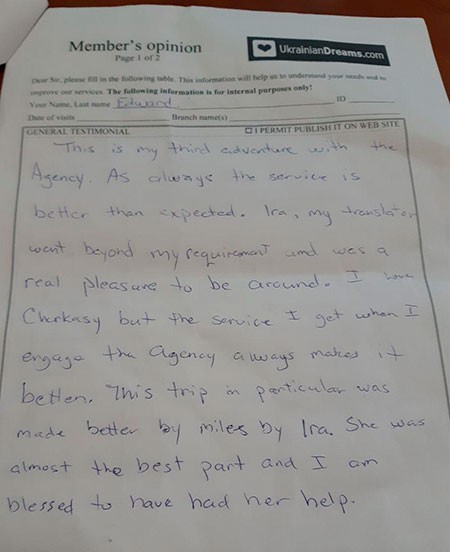 Member's opinion
Page 1 of 2
UkrainianDreams.com
Dear Sir, please fill in the following table. This information will help us to understand your needs and to
improve our services. The following information is for internal purposes only!
Your Name, Last name Edward ID
Date of visits Branch name(s)
GENERAL TESTIMONIAL I PERMIT PUBLISH IT ON WEB SITE
This is my third adventure with the
Agency. As always the service is
better than expected. Ira, my translator
went beyond my requirement and was a
real pleasure to be around. I love
Cherkasy but the service I get when I
engage the Agency always makes it
better. This trip in particular was
made better by miles by Ira. She was
almost the best part and I am
blessed to have had her help.